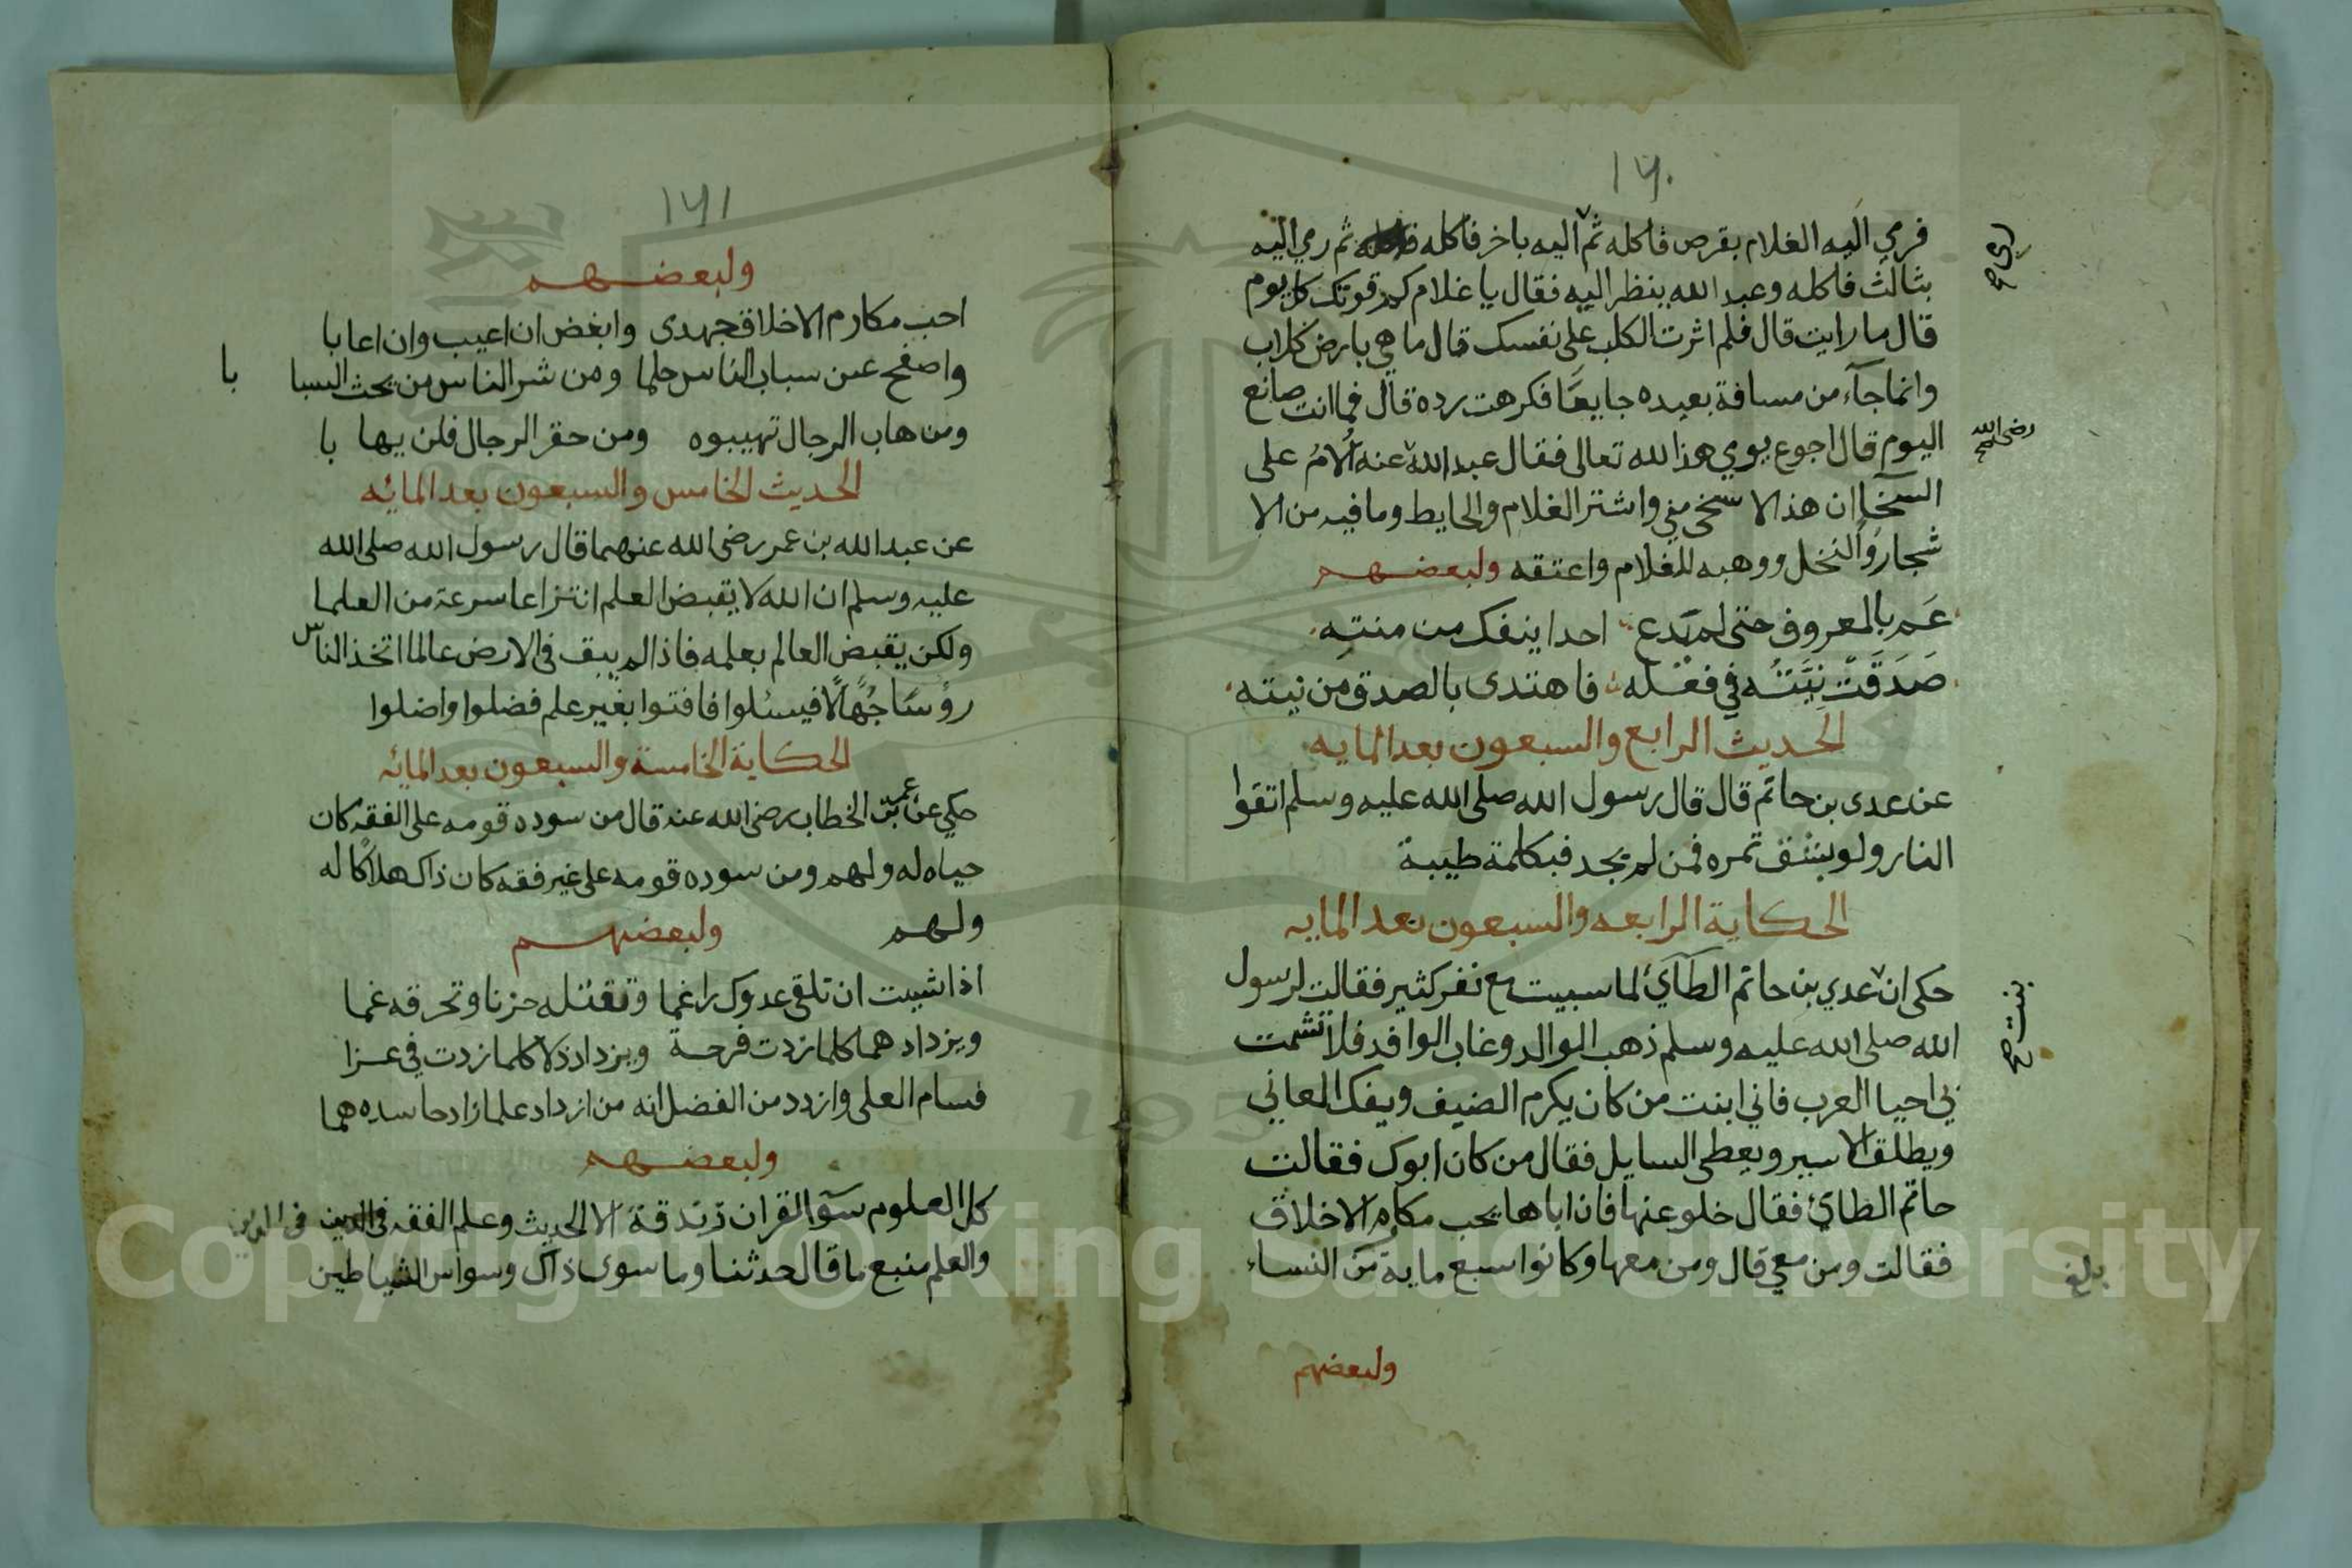 ١٧٠
فرمي اليه الغلام بقرص فاكله ثم اليه باخر فاكله ثم رمي اليه
رمى صح
بثالث فاكله وعبد الله ينظر اليه فقال يا غلام كم قوتك كل يوم
قال ما رايت قال فلم اثرت الكلب على نفسك قال ما هي بارض كلاب
وانما جآء من مسافة بعيده جايعًا فكرهت رده قال فما انت صانع
اليوم قال اجوع يومي هذا لله تعالى فقال عبد الله عنه أُلامُ على
رضي الله صح
السخا ان هذا لا سخى مني واشترا الغلام والحايط وما فيه من الا
شجار والنخل ووهبه للغلام واعتقه ولبعضهم
عَم بالمعروف حتى لم يَدع احدا ينفك من منتِه
صَدَقَتْ نِيَّتُه في فعله فاهتدى بالصدق من نيته
الحديث الرابع والسبعون بعد المايه
عن عدى بن حاتم قال قال رسول الله صلى الله عليه وسلم اتقوا
النار ولو بشق تمره فمن لم يجد فبكلمة طيبة
الحكاية الرابعه والسبعون بعد المايه
حكى ان عدي بن حاتم الطآئي لما سبيت مع نفر كثير فقالت لرسول
بنت صح
الله صلى الله عليه وسلم ذهب الوالد وغاب الوافد فلا تشمت
بي احيا العرب فاني ابنت من كان يكرم الضيف ويفك العاني
ويطلق الاسير ويعطى السايل فقال من كان ابوك فقالت
حاتم الطائ فقال خلو عنها فان اباها يحب مكارم الاخلاق
فقالت ومن معي قال ومن معها وكانوا سبع ماية من النساء
بلغ
ولبعضهم
١٧١
ولبعضهم
احب مكارم الاخلاق جهدى وابغض ان اعيب وان اعابا
واصفح عن سباب الناس حلما ومن شر الناس من يحث السبا با
ومن هاب الرجال تهيبوه ومن حقر الرجال فلن يها با
الحديث الخامس والسبعون بعد المائه
عن عبد الله بن عمر رضى الله عنهما قال رسول الله صلى الله
عليه وسلم ان الله لا يقبض العلم انتزاعا سرعة من العلما
ولكن يقبض العالم بعلمه فاذا لم يبق في الارض عالما اتخذ الناس
رؤسًا جُهَّالًا فيسئلوا فافتوا بغير علم فضلوا واضلوا
الحكاية الخامسة والسبعون بعد المائه
حكي عن عمر بن الخطاب رضى الله عنه قال من سوده قومه على الفقه كان
حياه له ولهم ومن سوده قومه على غير فقه كان ذاك هلاكًا له
ولهم ولبعضهم
اذا شيت ان تلقى عدوك راغما وتقتله حزنا وتحرقه غما
ويزداد هما كلما زدت فرحة ويزداد ذلا كلما زدت في عزا
فسام العلى وازدد من الفضل انه من ازداد علما زاد حاسده هما
ولبعضهم
كل العلوم سوا القران زندقة الا الحديث وعلم الفقه في الدين في الدين
والعلم منبع ما قال حدثنا وما سوى ذاك وسواس الشياطين
Copyright © King Saud University
195